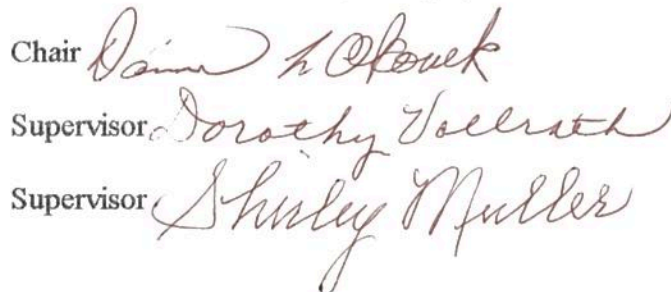 Chair
Supervisor Dorothy Vollrath
Supervisor Shirley Muller